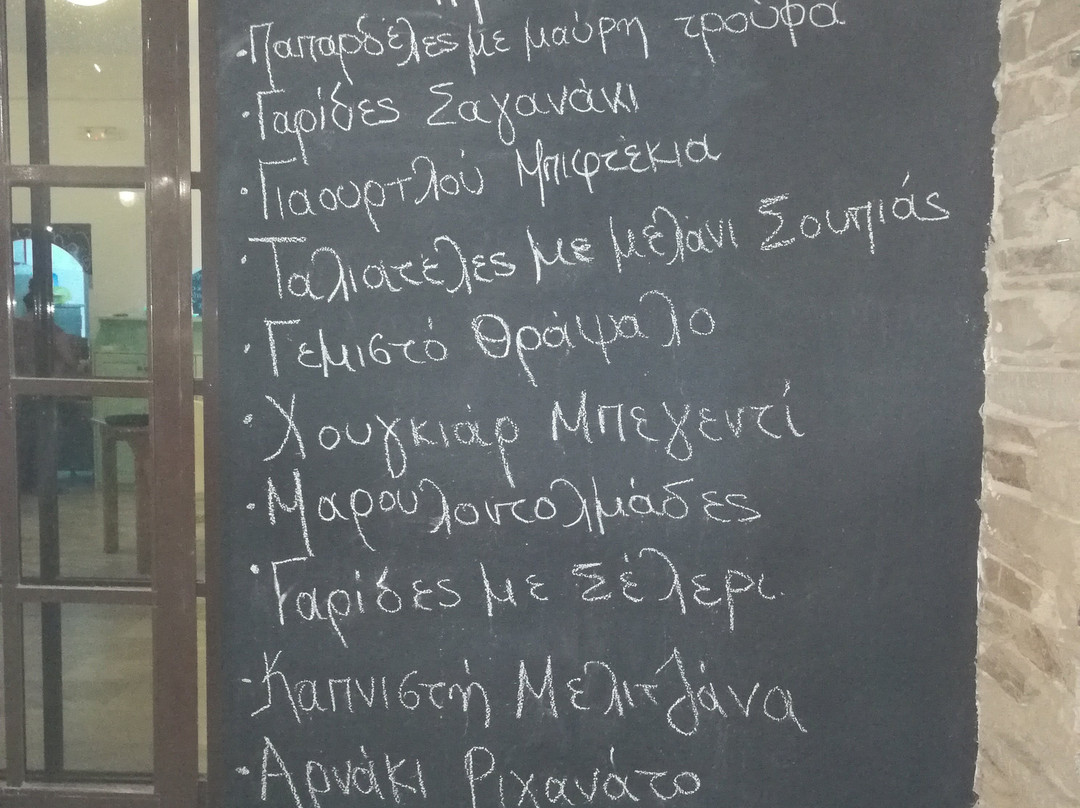 ·Παπαρδέλες με μαύρη τρούφα
·Γαρίδες Σαγανάκι
·Γιαουρτλού Μπιφτέκια
·Ταλιατέλες με μελάνι Σουπιάς
·Γεμιστό Θράψαλο
·Χουγκιάρ Μπεγεντί
·Μαρουλοντολμάδες
·Γαρίδες με Σέλερι.
·Καπνιστή Μελιτζάνα
·Αρνάκι Ριχανάτο